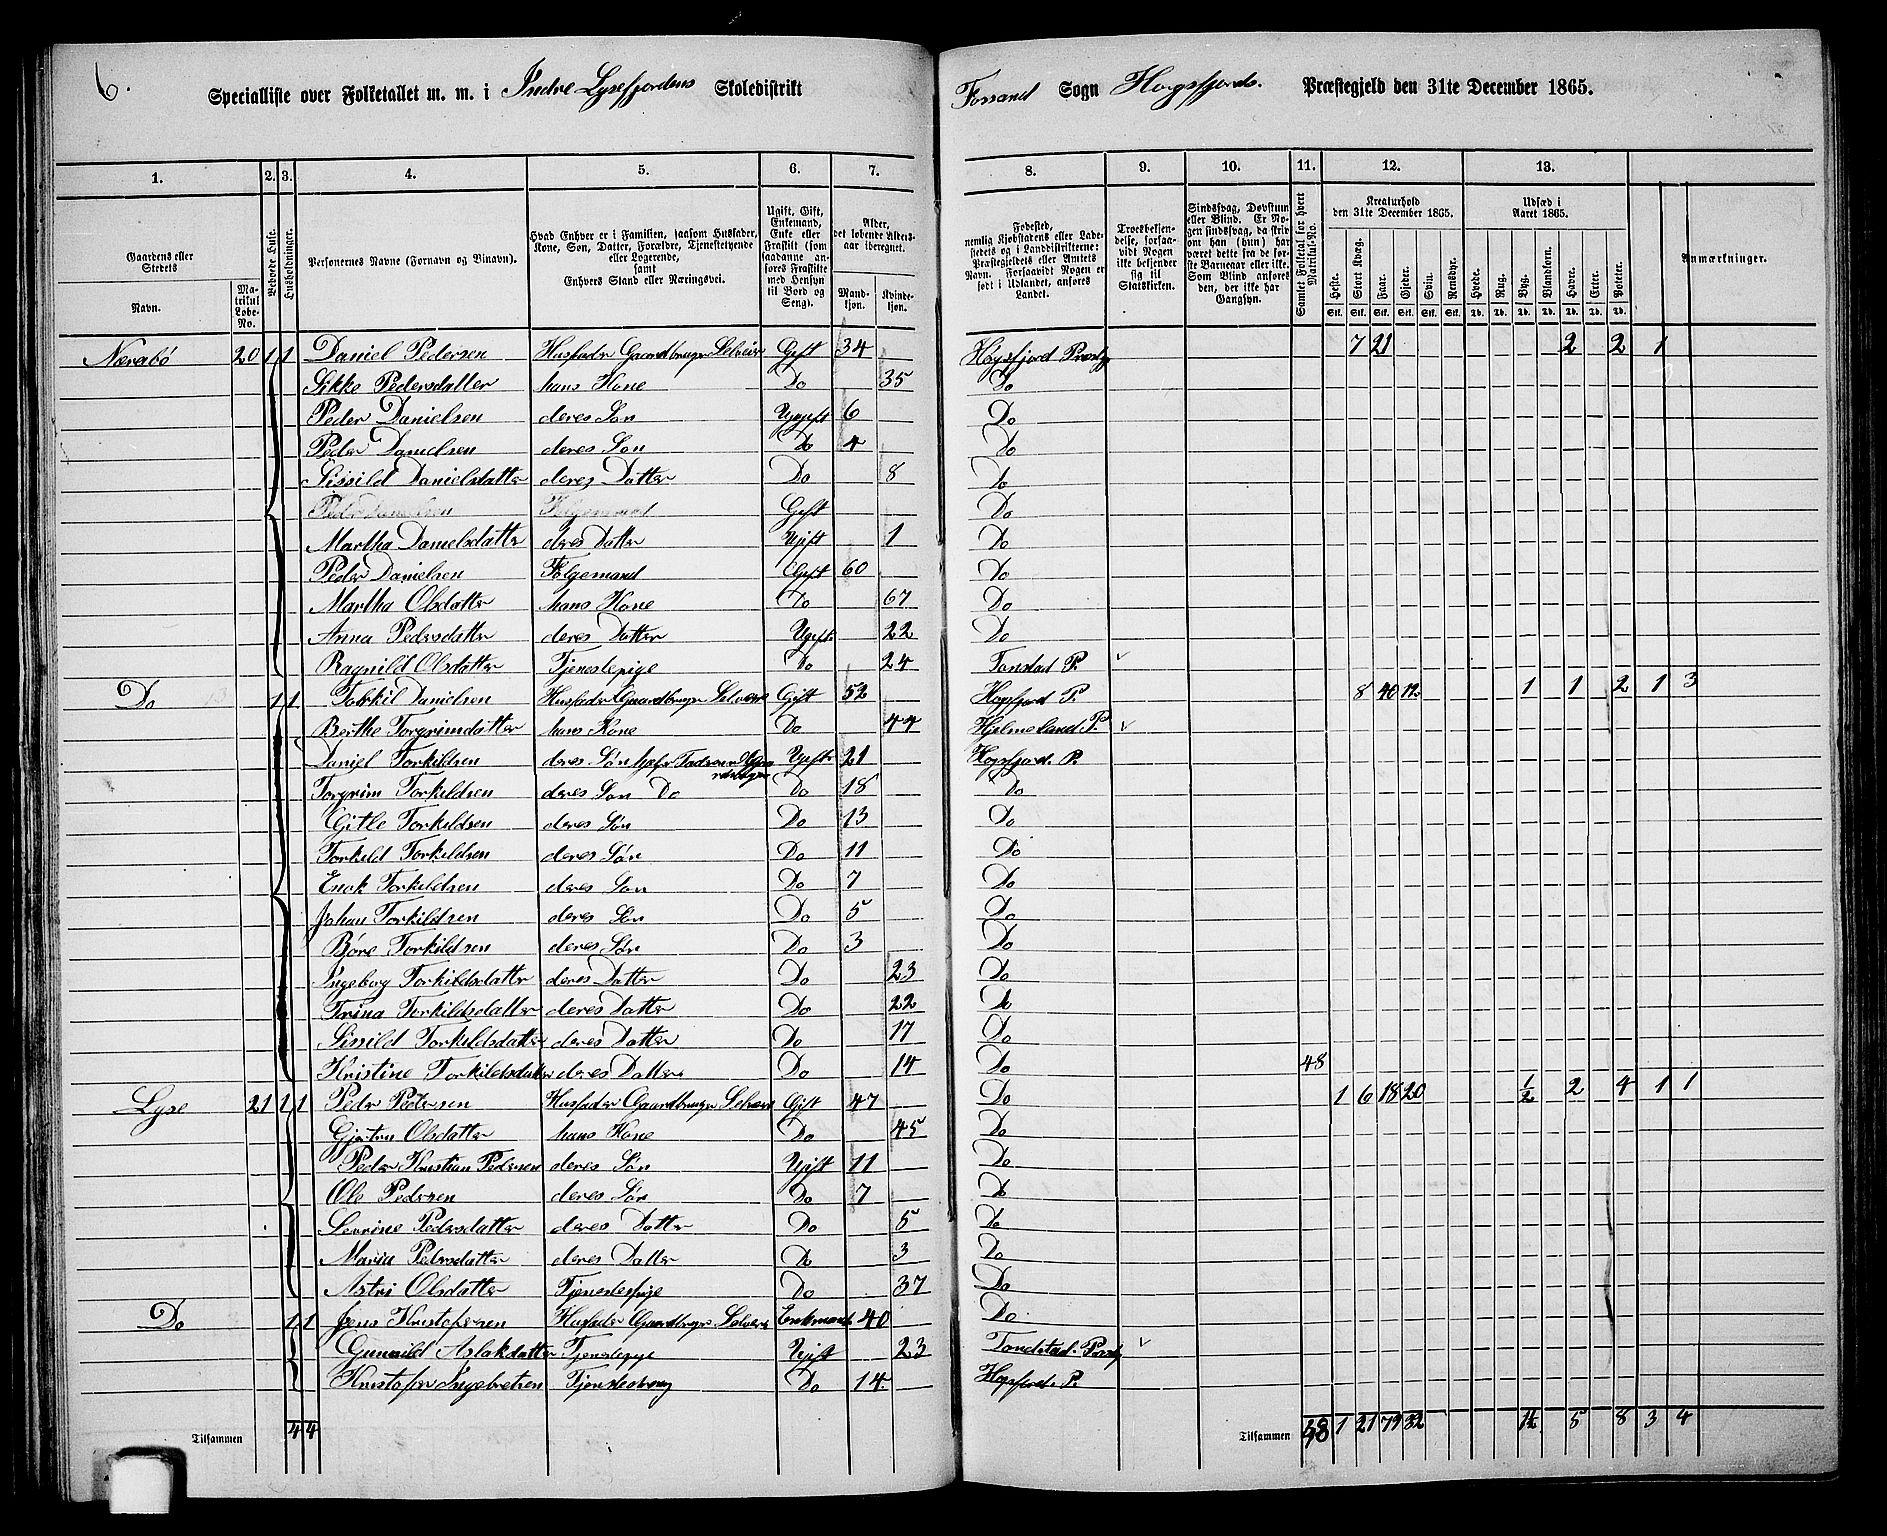 6.
Specialliste over Folketallet m. m. i Indre Lysefjordens Skoledistrikt
Forsand Sogn Høgsfjords. Præstegjeld den 31te December 1865.
1. 2. 3. 4. 5. 6. 7. 8. 9. 10. 11. 12. 13.
Gaardens eller Stedets
Navn.
Matrikul Løbe-No.
Bebyggede Huse.
Husholdninger.
Personernes Navne (Fornavn og Binavn).
Hvad Enhver er i Familien, saasom Husfader, Kone, Søn, Datter, Forældre, Tjenestetyende eller Logerende, samt Enhvers Stand eller Næringsvei.
Ugift, Gift, Enkemand, Enke eller Fraskilt (som saadanne anføres Fraskilte med Hensyn til Bord og Seng).
Alder, det løbende Aldersaar iberegnet.
Mandkjøn. Kvindekjøn.
Fødested, nemlig Kjøbstadens eller Ladestedets og i Landdistrikterne: Præstegjeldets eller Amtets Navn. Forsaavidt Nogen er født i Udlandet, anføres Landet.
Troesbekjendelse, forsaavidt Nogen ikke bekjender sig til Statskirken.
Sindssvag, Døvstum eller Blind. Er Nogen sindssvag, da skrives om han (hun) har været dette fra de første Barneaar eller ikke. Som Blind anføres den, der ikke har Gangsyn.
Samlet Folketal for hvert Matrikul-No.
Kreaturhold den 31te December 1865.
Heste. Stort Kvæg. Faar. Gjeder. Svin. Rensdyr.
Udsæd i Aaret 1865.
Hvede. Rug. Byg. Blandkorn. Havre. Erter. Poteter.
Anmærkninger.
Nerabø 20 1 1 Daniel Pedersen Husfader Gaardbruger Selveier Gift 34 Høgsfjord Præstg 7 21 2 2 1
Sikke Pedersdatter hans Kone Do 35 Do
Peder Danielsen deres Søn Ugift 6 Do
Peder Danielsen deres Søn Do 4 Do
Sissild Danielsdatter deres Datter Do 8 Do
Peder Danielsen Følgemand Gift Do
Martha Danielsdatter deres Datter Ugift 1 Do
Peder Danielsen Følgemand Gift 60 Do
Martha Olsdatter hans Kone Do 67 Do
Anna Pedersdatter deres Datter Ugift 22 Do
Ragnild Olsdatter Tjenestepige Do 24 Tonstad P.
Do 1 1 Torkil Danielsen Husfader Gaardbruger Selveier Gift 52 Høgsfjord P. 8 40 12 1 1 2 1 3
Berthe Torgrimdatter hans Kone Do 44 Hjelmeland P.
Daniel Torkildsen deres Søn Ugift 21 Høgsfjord P.
Torgrim Torkildsen deres Søn Do Do 18 Do
Gitle Torkildsen deres Søn Do 13 Do
Torkild Torkildsen deres Søn Do 11 Do
Enok Torkildsen deres Søn Do 7 Do
Johan Torkildsen deres Søn Do 5 Do
Børe Torkildsen deres Søn Do 3 Do
Ingeborg Torkildsdatter deres Datter Do 23 Do
Trina Torkildsdatter deres Datter Do 22 Do
Sissild Torkildsdatter deres Datter Do 17 Do
Kristine Torkildsdatter deres Datter Do 14 Do 48
Lyse 21 1 1 Peder Pedersen Husfader Gaardbruger Selveier Gift 47 Do 1 6 18 20 1/2 2 4 1 1
Gjertru Olsdatter hans Kone Do 45 Do
Peder Kristian Pedersen deres Søn Ugift 11 Do
Ole Pedersen deres Søn Do 7 Do
Serrine Pedersdatter deres Datter Do 5 Do
Maria Pedersdatter deres Datter Do 3 Do
Astri Olsdatter Tjenestepige Do 37 Do
Do 1 1 Jens Kristofersen Husfader Gaardbruger Selveier Enkemand 40 Do
Gunnild Aslakdatter Tjenestepige Ugift 23 Tondstad Præstg
Kristofer Ingebretsen Tjenestedreng Do 14 Høgsfjord P.
Tilsammen 4 4
Tilsammen 48 1 21 79 32 1½ 5 8 3 4